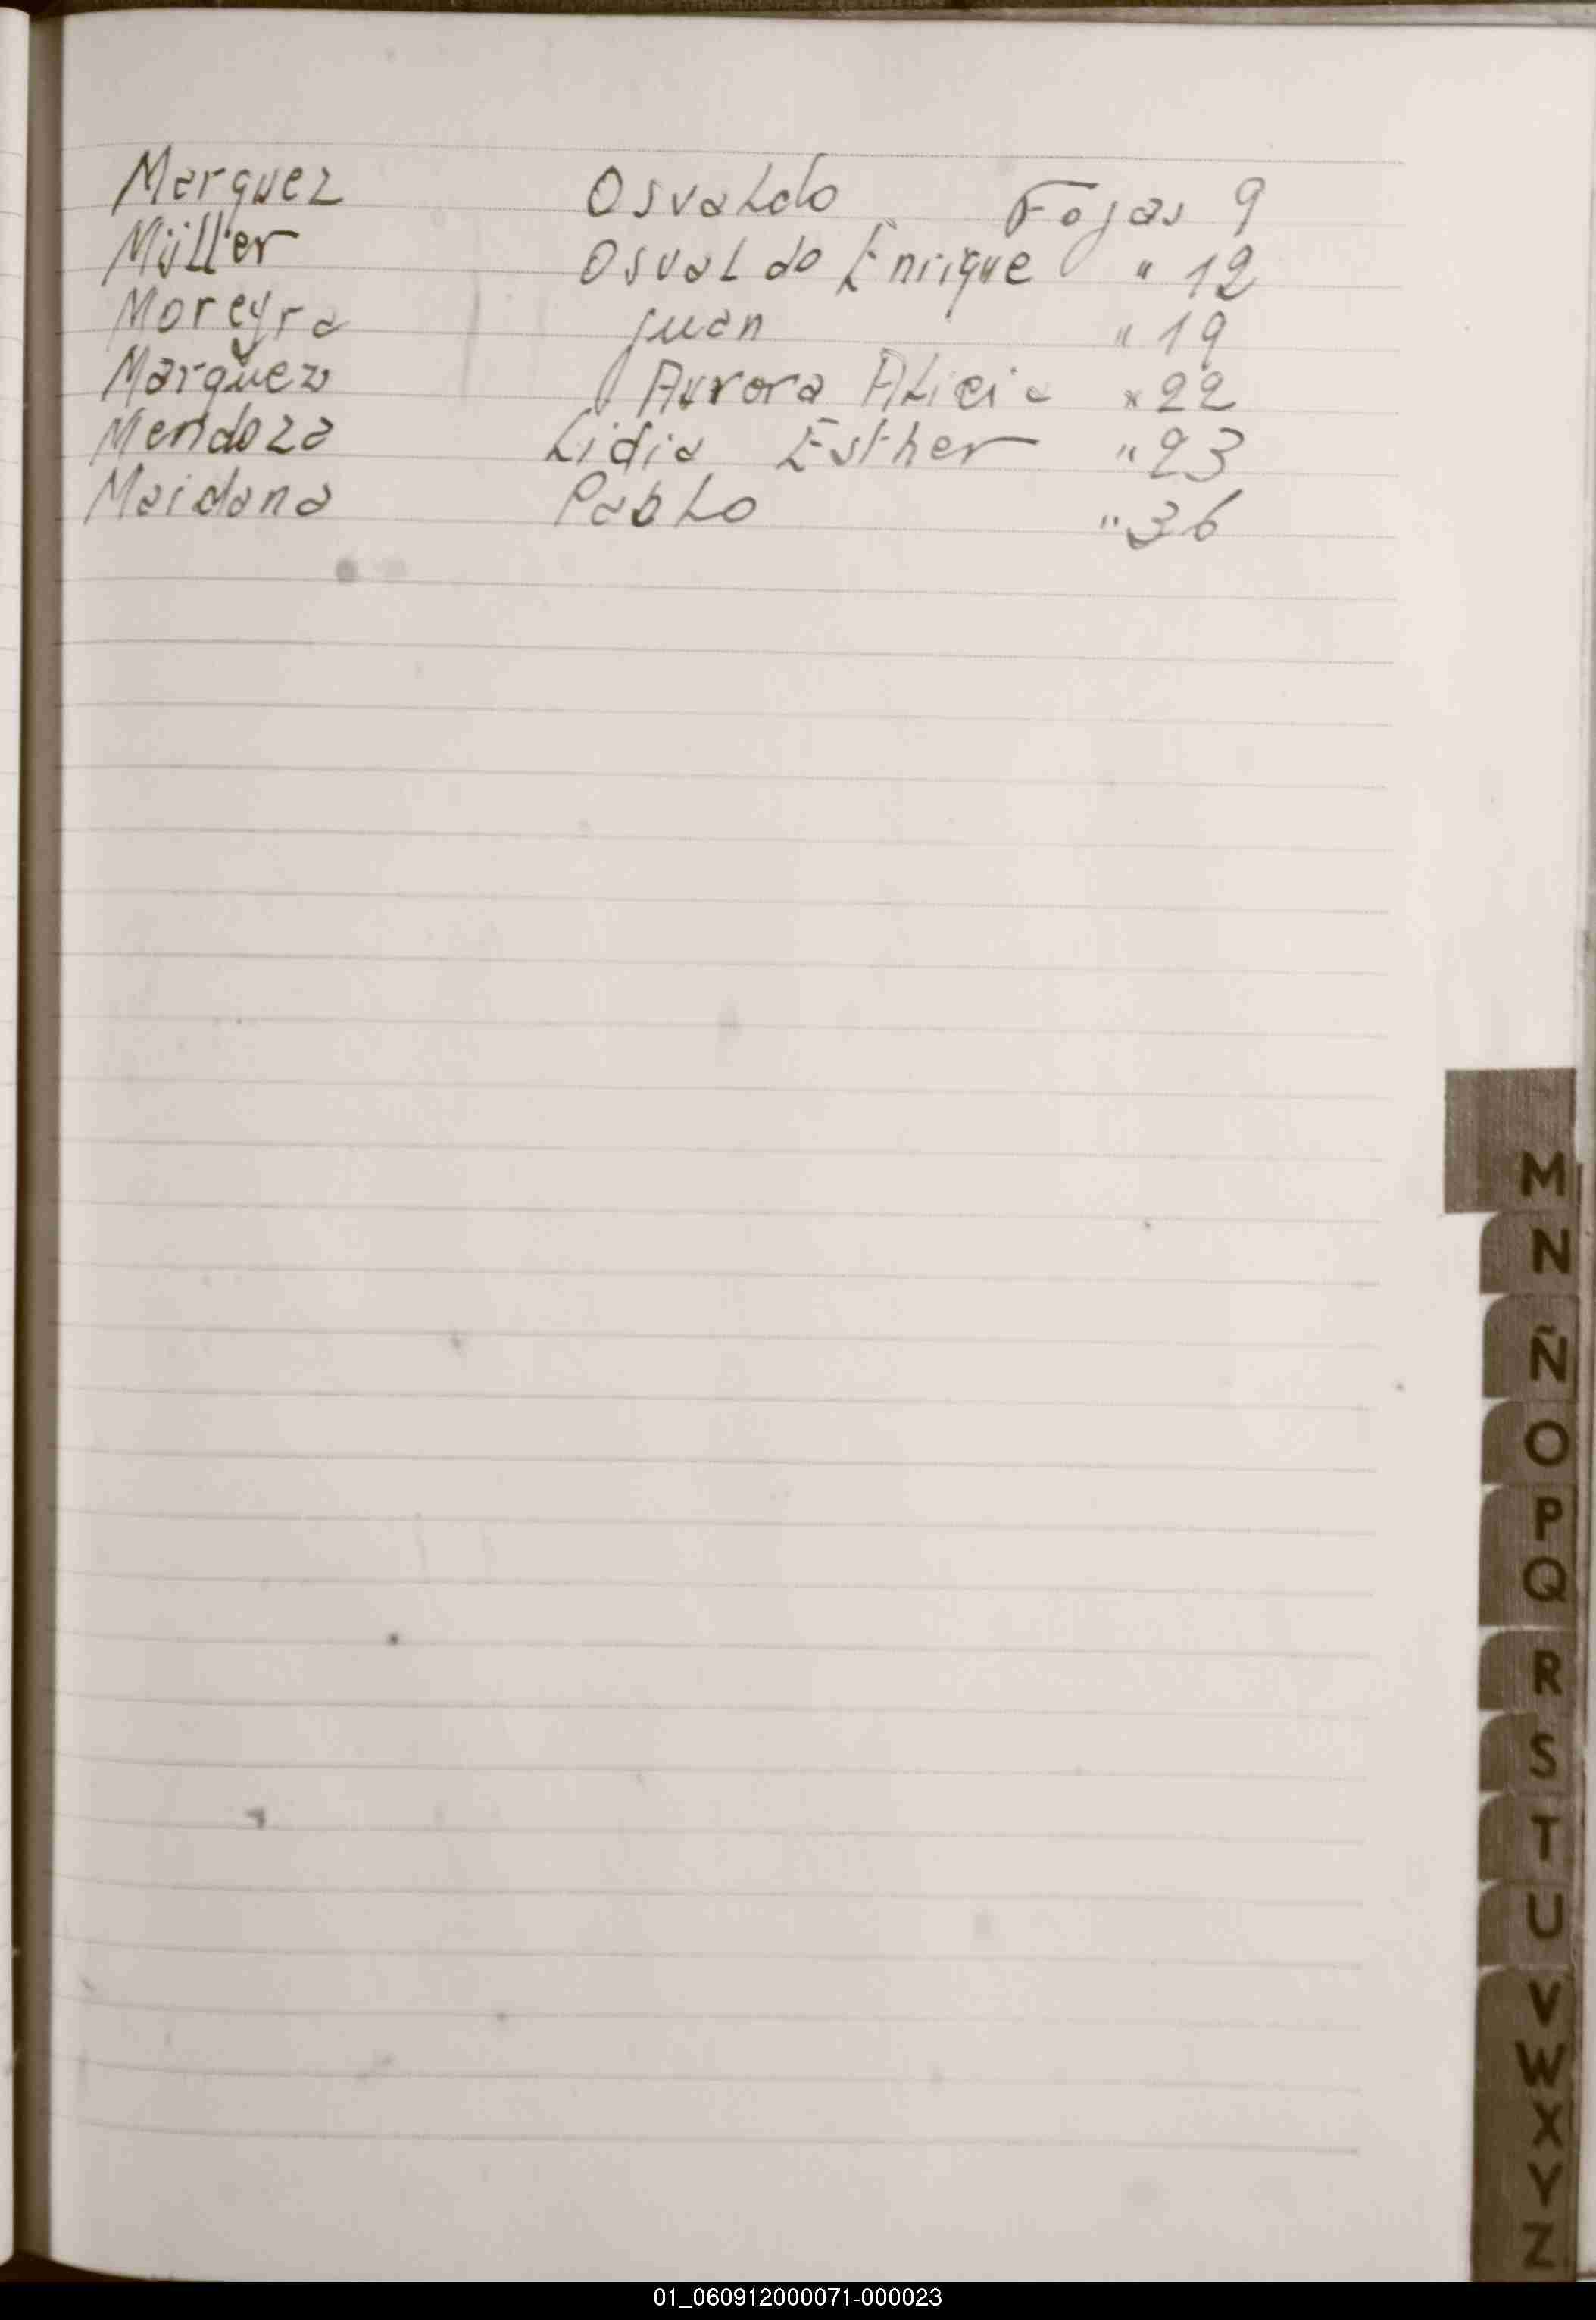 Marquez Osvaldo Fojas 9
Müller Osvaldo Enrique " 12
Moreyra Juan " 19
Marquez Aurora Alicia " 22
Mendoza Lidia Esther " 23
Maidana Pablo " 36
M
N
Ñ
O
P
Q
R
S
T
U
V
W
X
Y
Z
01_060912000071-000023